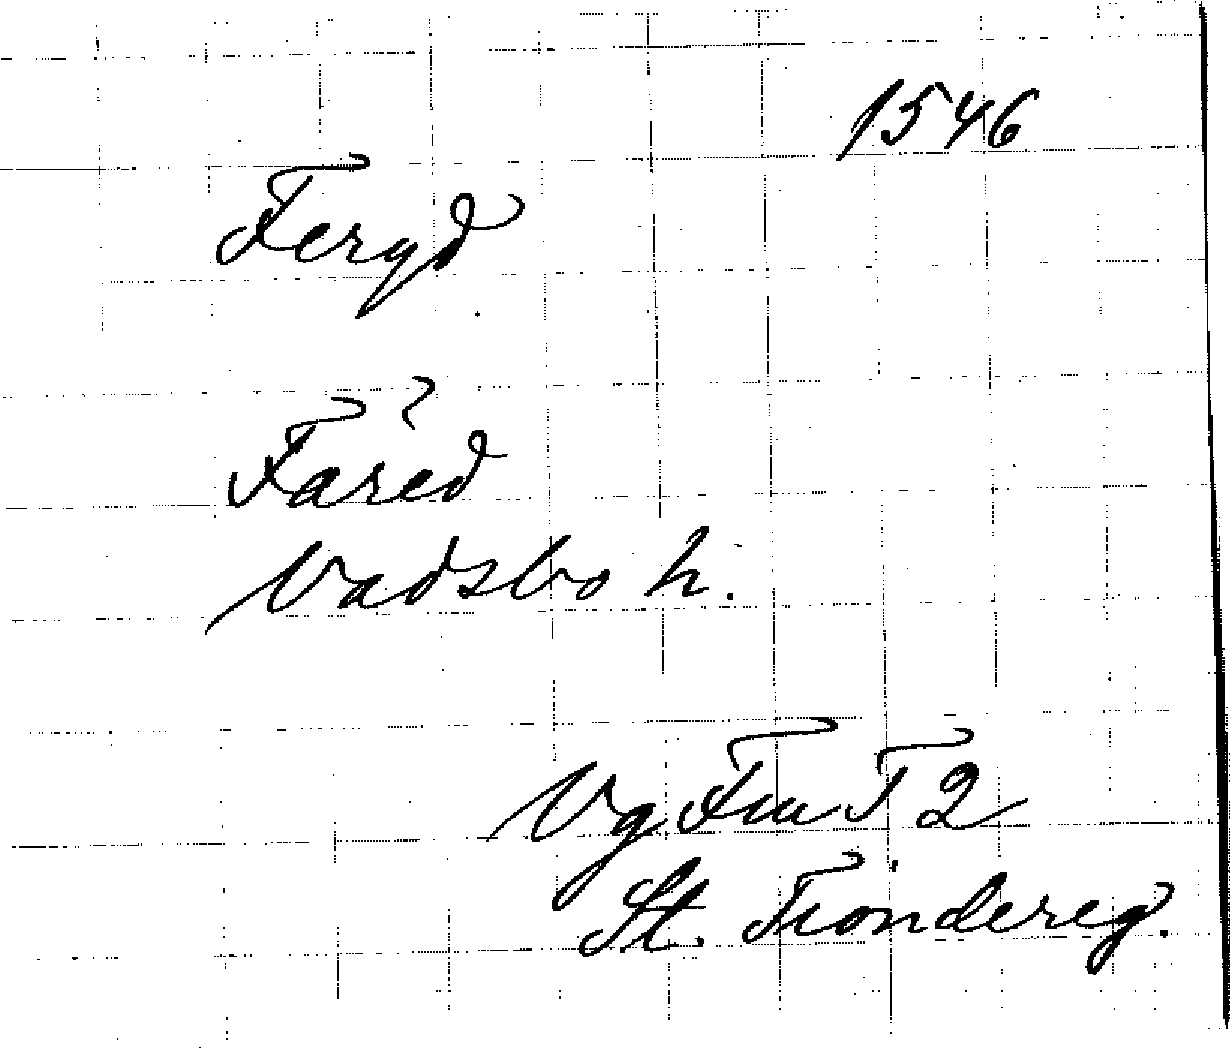 1546
Feryd
Fåred
Vadsbo h.
Vg T 2
St. Tiondereg.